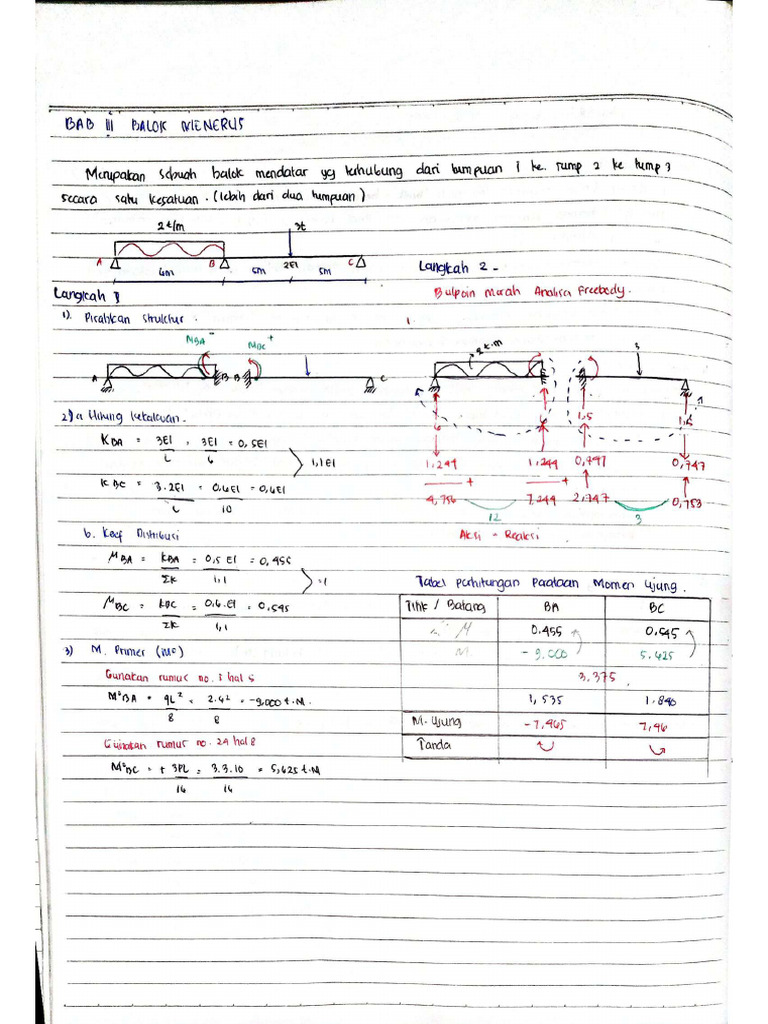 BAB III BALOK MENERUS
Merupakan sebuah balok mendatar yg terhubung dari tumpuan 1 ke tump 2 ke tump 3
secara satu kesatuan. (lebih dari dua tumpuan)
2 t/m 3t
A B 2EI C
6m 5m 5m
Langkah 1
1). Pisahkan struktur.
MBA - MBC +
A B B C
2) a Hitung kekakuan.
KBA = 3EI/L = 3EI/6 = 0,5EI
KBC = 3.2EI/L = 0,6EI/10 = 0,6EI
1,1EI
b. Koef Distribusi
μBA = KBA/ΣK = 0,5 EI/1,1 = 0,455
μBC = KBC/ΣK = 0,6.EI/1,1 = 0,545
=1
3) M. Primer (M°)
Gunakan rumus no. 3 hal 5
M°BA = qL²/8 = 2.6²/8 = -9.000 t.M.
Gunakan rumus no. 24 hal 8
M°BC = + 3PL/16 = 3.3.10/16 = 5,625 t.M
Langkah 2 -
Bulpoin merah Analisa Freebody.
1.
2 t.m 3
6 6 1,5 1,5
1,244 1,244 0,747 0,747
+ +
4,756 7.244 2,747 0,753
12 3
Aksi = Reaksi
Tabel perhitungan Momen Ujung.
Titik / Batang BA BC
μ 0.455 0.545
M. -9.000 5.625
3.375
1,535 1.840
M. Ujung -7,465 7,46
Tanda